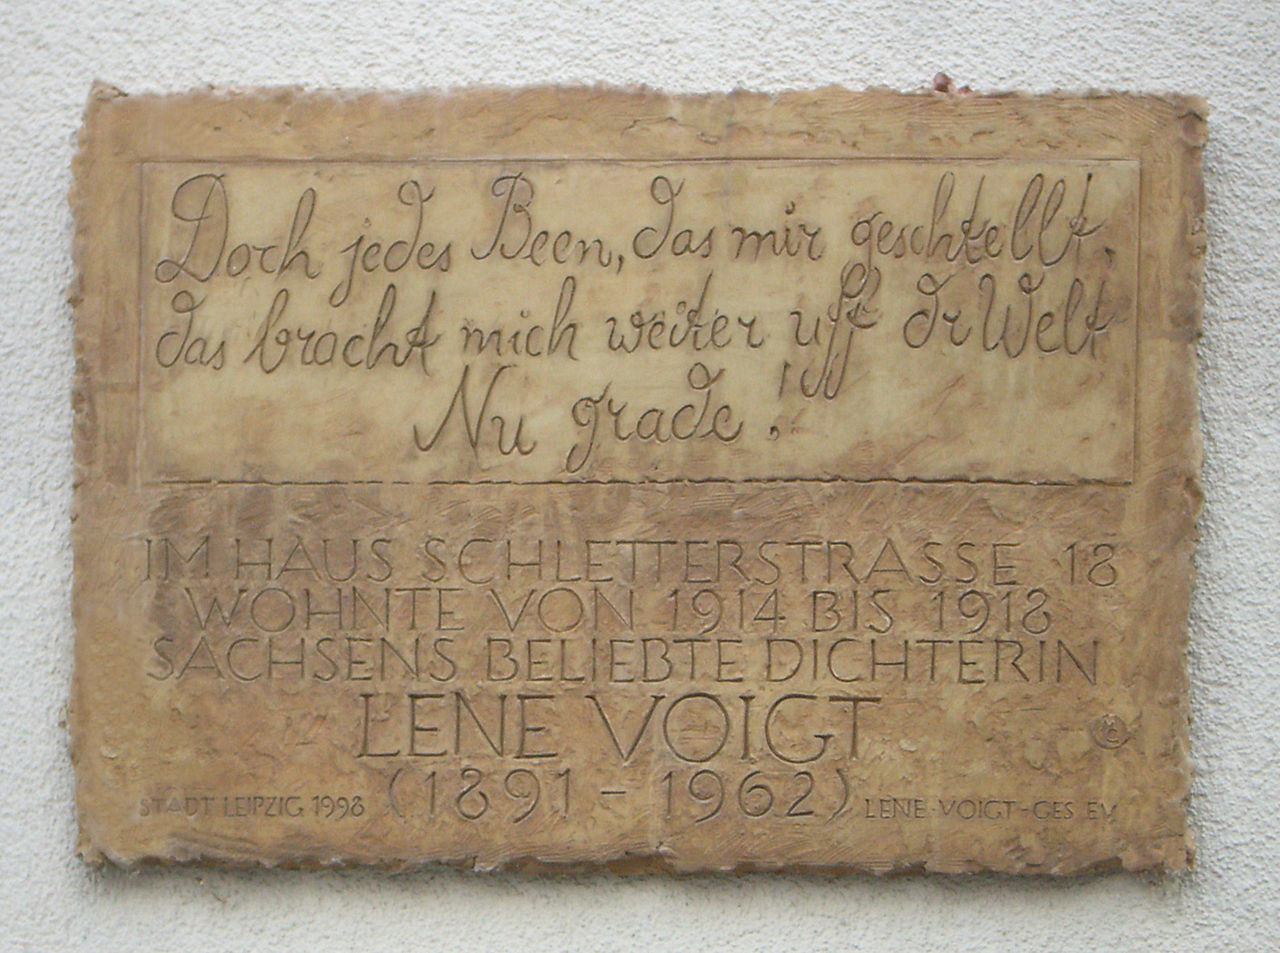 Doch jedes Been, das mir geschtellt,
das bracht mich weiter uff dr Welt
Nu grade!
IM HAUS SCHLETTERSTRASSE 18
WOHNTE VON 1914 BIS 1918
SACHSENS BELIEBTE DICHTERIN
LENE VOIGT
(1891-1962)
STADT LEIPZIG 1998
LENE-VOIGT-GES EV